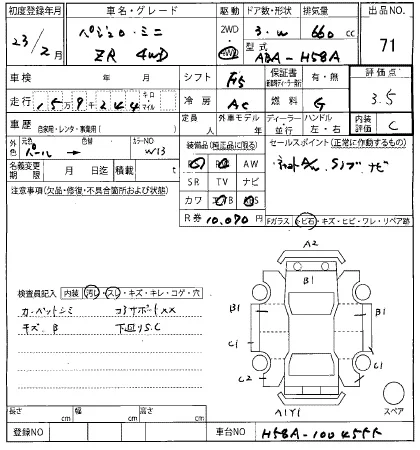 初度登録年月 車名・グレード 駆動 ドア数・形状 排気量 出品NO.
23/2月 パジェロ・ミニ 2WD 3.W 660 cc 71
XR 4WD 4WD 型式 ABA-H58A
車検 年 月 シフト F5 保証書 有・無 評価点
走行 15万9千244 キロ マイル 冷房 AC 燃料 G 3.5
車歴 自家用・レンタ・事業用( ) 定員 人 外車モデル 年 ディーラー 並行 ハンドル 左・右 内装評価 C
外色 元色 パール 色替 カラーNO W13 装備品(純正品に限る) セールスポイント(正常に作動するもの)
AW Sノブ ナビ
名義変更期限 月 日迄 積載 t SR TV ナビ
注意事項(欠品・修復・不具合箇所および状態) カワ
R券 10,070円 Fガラス ヒ石・キズ・ヒビ・ワレ・リペア跡
A2
B1
検査員記入 内装 汚レ・スレ・キズ・キレ・コゲ・穴
カーペットシミ コアサポートXX
キズ B 下回りS,C
B1 B1
C1 C1
C2 C1
A1Y1
スペア
長さ cm 幅 cm 高さ cm
登録NO 車台NO H58A-10045ττ